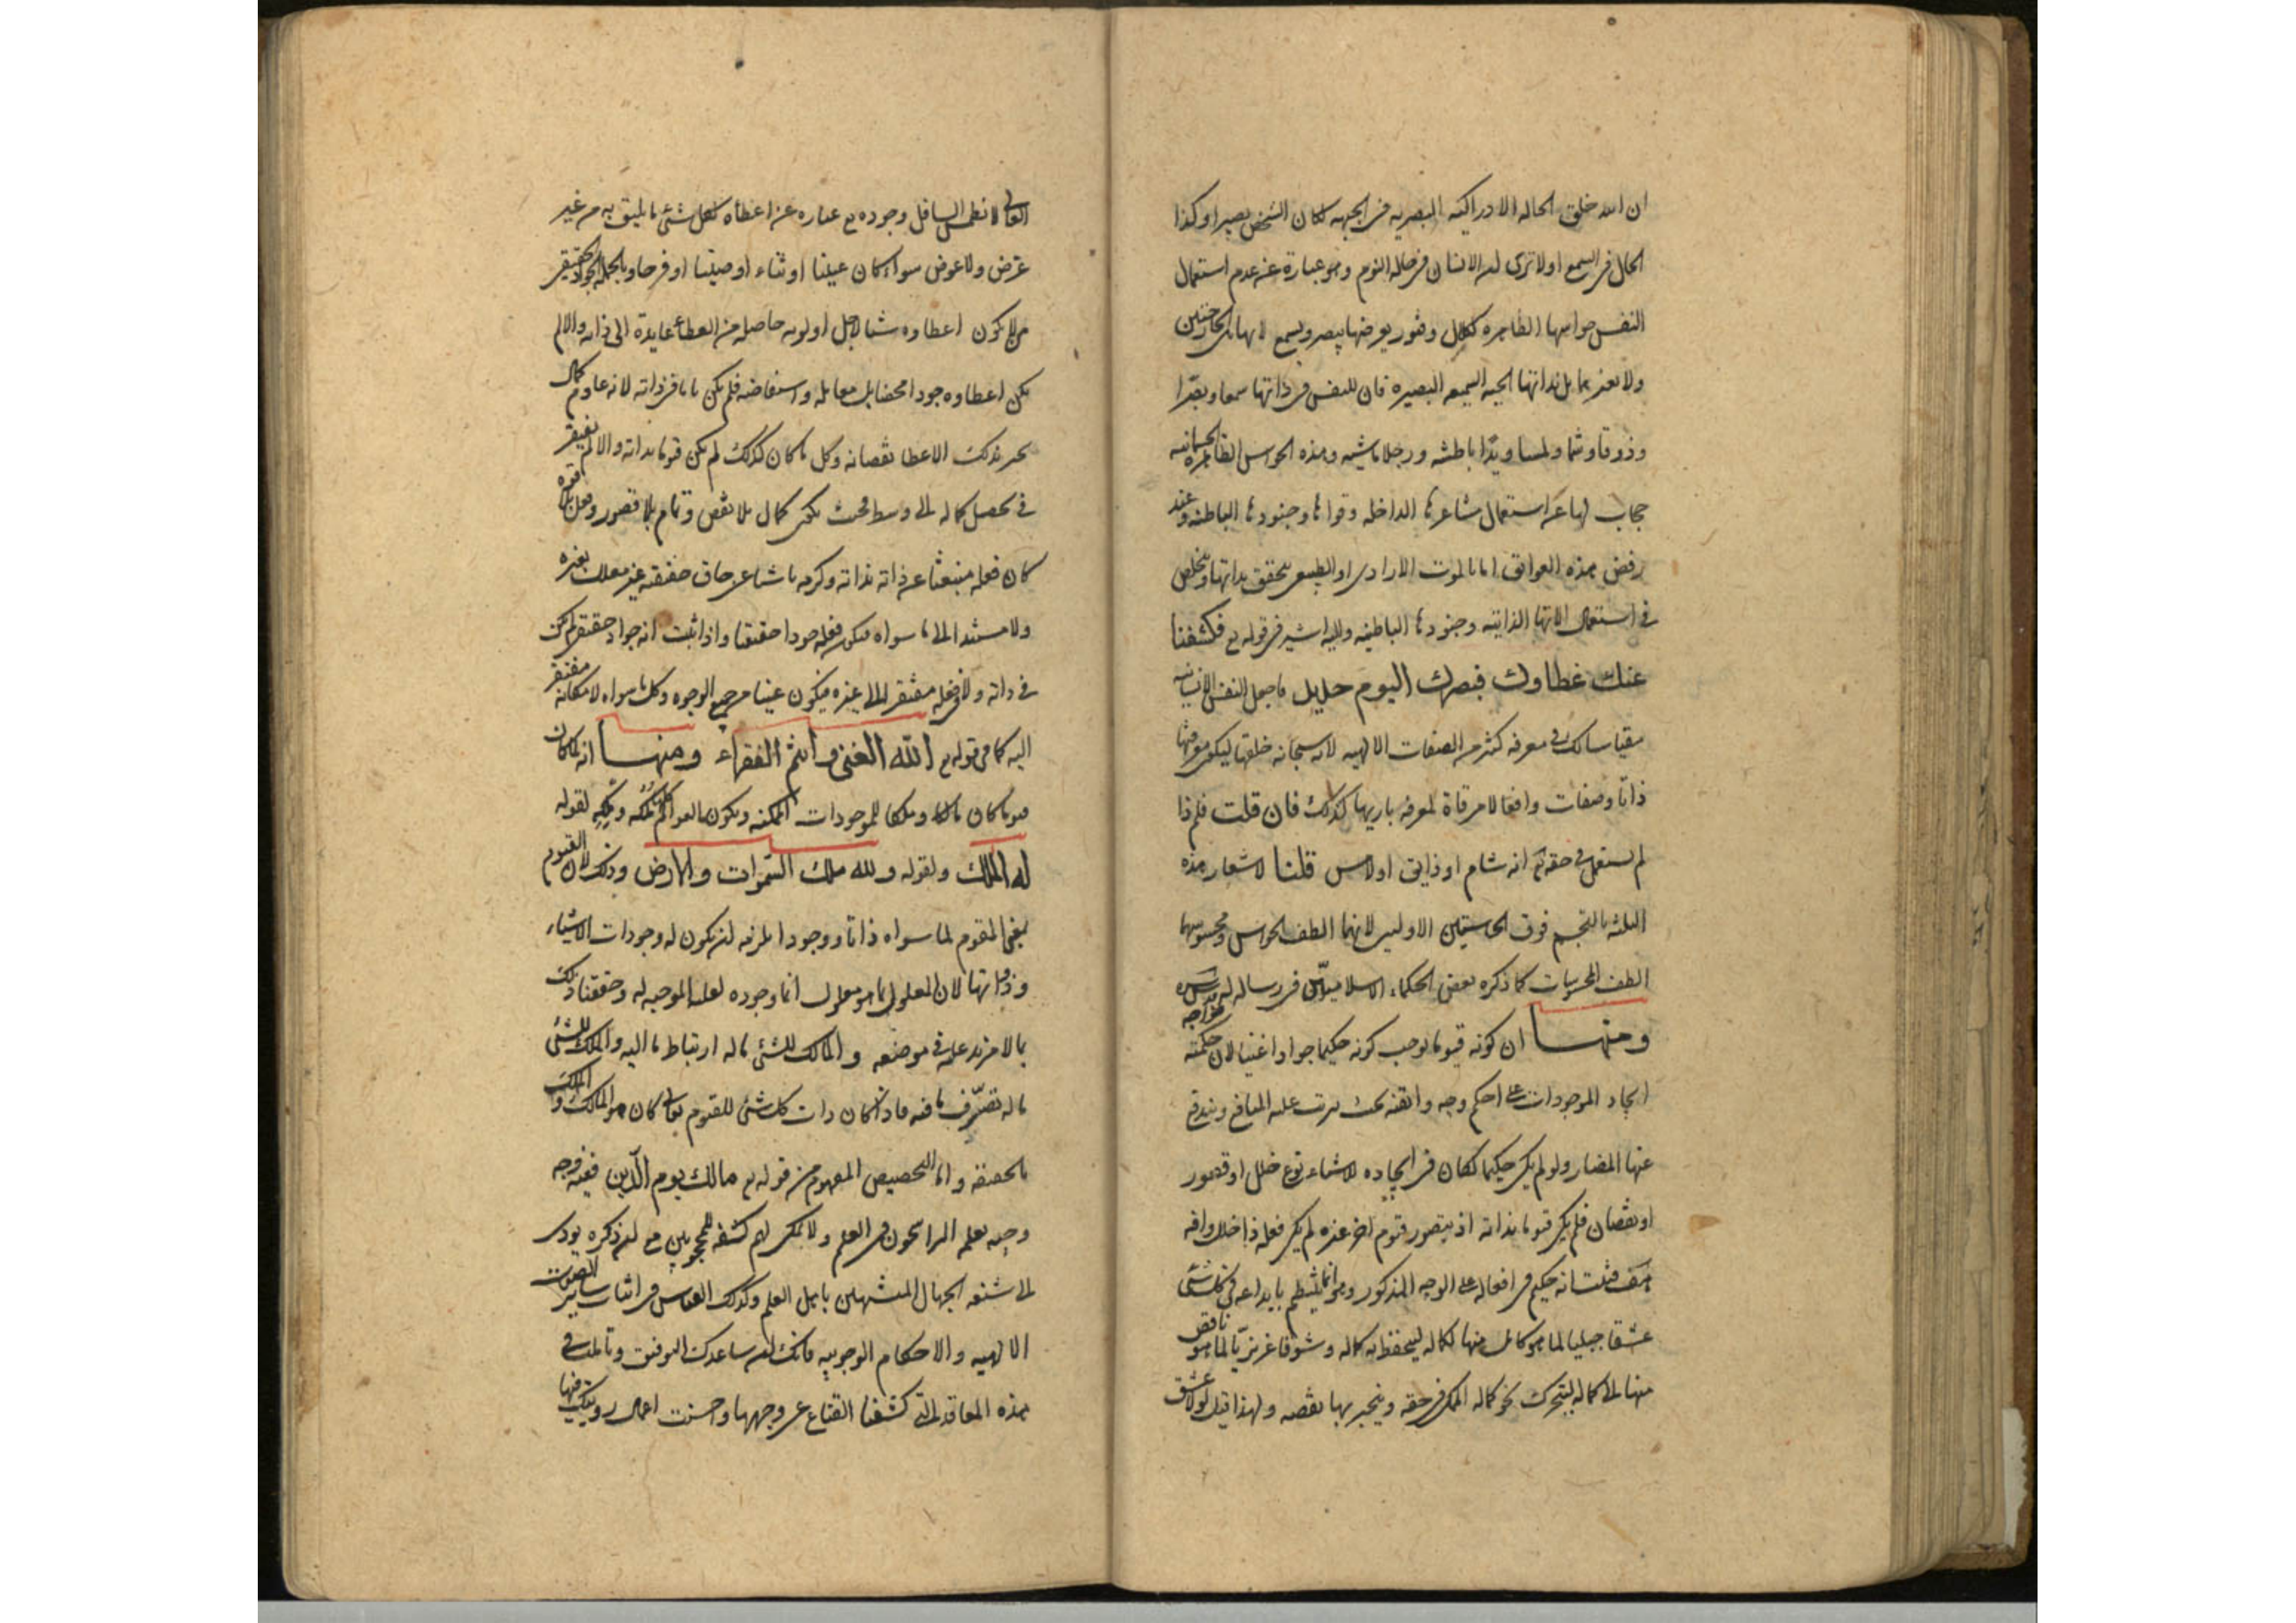 ان الله خلق الحاله الادراكيه البصريه في الجبهه لكان الشخص بصيرا وكذا
الحال في السمع اولا ترى ان الانسان في حاله النوم وهو عبارة عن عدم استعمال
النفس حواسها الظاهره لكلال وفتور يعرضها يبصر ويسمع لا بهاتين الجارحتين
ولا بغيرهما بل بذاتها الحيه السميعه البصيره فان للنفس في ذاتها سمعا وبصرا
وذوقا وشما ولمسا ويدا باطشه ورجلا ماشيه وهذه الحواس الظاهره الجسمانيه
حجاب لها عن استعمال مشاعرها الداخله وقواها وجنودها الباطنه وعند
رفض هذه العوائق اما بالموت الارادى او الطبيعى يتحقق بذاتها ويخلص
في استعمال الاتها الذاتيه وجنودها الباطنيه واليه اشير في قوله تع فكشفنا
عنك غطاوك فبصرك اليوم حديد فاجعل النفس الانسانيه
مقياسا لك فى معرفه كثير من الصفات الالهيه لانه سبحانه خلقها ليكون معرفتها
ذاتا وصفات وافعالا مرقاة لمعرفه باريها كذلك فان قلت فلم ذا
لم يستعمل فى حقه تع انه شام او ذايق او لامس قلنا لاشعار هذه
الثلثه بالتجسم فوق الحاستين الاوليين لانهما الطف الحواس ومحسوسهما
الطف المحسوسات كما ذكره بعض الحكماء الاسلاميين في رساله له
ومنها ان كونه قيوما يوجب كونه حكيما جوادا غنيا لان حكمته
ايجاد الموجودات على احكم وجه واتقنه بحيث يترتب عليه المنافع ويندفع
عنها المضار ولو لم يكن حكيما لكان في ايجاده للاشياء نوع خلل او قصور
او نقصان فلم يكن قيوما بذاته اذ يتصور قيوم اخر غيره لم يكن فعله ذا خلل وافه
هف فثبت انه حكيم في افعاله على الوجه المذكور وهو انما ينتظم بايداعه في كل شئ
عشقا جبليا لما هو كامل منها لكماله ليحفظ به كماله وشوقا غريزيا لما هو ناقص
منها الى كماله ليتحرك نحو كماله الممكن في حقه وينجبر بها نقصه ولهذا قيل لولا عشق
العالى لانطمس السافل وجوده تع عباره عن اعطاه لكل شئ ما يليق به من غير
غرض ولا عوض سواء كان عينا او ثناء او صيتا او فرحا وبالجمله الجواد الحقيقى
من لا يكون اعطاوه شيئا لاجل اولويه حاصله من العطاء عايدة الى ذاته والا لم
يكن اعطاوه جودا محضا بل معامله واستفاضه فلم يكن تاما في ذاته لانه عادم كمال
يجبر بذلك الاعطا نقصانه وكل ما كان كذلك لم يكن قيوما بذاته والا لم يفتقر
في تحصيل كماله الى وسط فحيث يكون كمال بلا نقص وتمام بلا قصور وفعل بلا قوه
كان فعله منبعثا عن ذاته بذاته وكرمه ناشئا عن حاق حقيقه غير معلله بغيره
ولا مستند الى ما سواه فيكون فعله جودا حقيقيا واذا ثبت انه جواد حقيقى لم يكن
في ذاته ولا في فعله مفتقر الى غيره فيكون غنيا من جميع الوجوه وكل ما سواه لامكانه مفتقر
اليه كما فى قوله تع الله الغنى وانتم الفقراء ومنها انه لما كان
قيوما كان مالكا وملكا للموجودات الممكنه ويكون العوالم كلها مُلكه ومِلكه لقوله
له الملك ولقوله ولله ملك السموات والارض وذلك لان القيوم
يعنى المقوم لما سواه ذاتا ووجودا يلزمه ان يكون له وجودات الاشياء
وذواتها لان المعلول بما هو معلول انما وجوده لعلته الموجبه له وحققنا ذلك
بما لا مزيد عليه في موضعه والمالك للشئ ما له ارتباط ما اليه والملك للشئ
ما له تصرف ما فيه فاذا كان ذات كل شئ للقيوم تعالى كان هو المالك والملك
بالحقيقه واما التخصيص المفهوم من قوله تع مالك يوم الدين ففيه وجه
وجيه يعلمه الراسخون في العلم ولا يمكن لهم كشفه للمحجوبين مع ان ذكره يودى
الى شنعه الجهال المتشبهين باهل العلم وكذلك القياس في اثبات ساير الصفات
الالهيه والاحكام الوجوبيه فانك ان ساعدك التوفيق وتاملت فى
هذه المعاقد التى كشفنا القناع عن وجهها واحسنت اعمال رويتك فيها